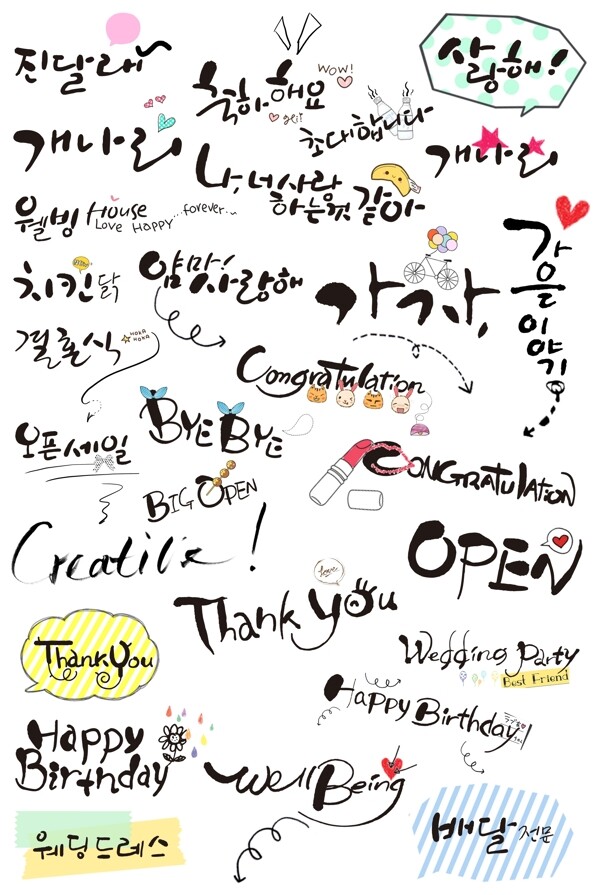 진달래
축하해요
WOW!
사랑해!
초대합니다
개나리
개나리
나, 너 사랑
하는것 같아
웰빙
House
Love Happy
...forever...
가을이야기
치킨
닭
엄마! 사랑해
가자,
결혼식
HOHA
HOHA
Congratulation
오픈세일
BYE BYE
BIG OPEN
CONGRATULATION
Creative!
OPEN
love
Thank you
Thank You
Wedding Party
Best Friend
Happy Birthday
Happy
Birthday
Well Being
웨딩드레스
배달 전문